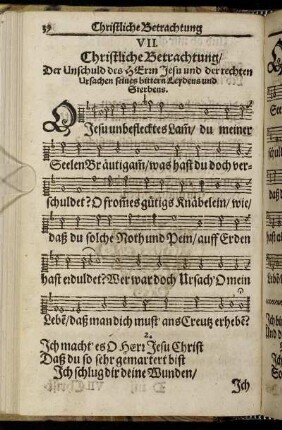 Christliche Betrachtung
VII.
Christliche Betrachtung/
Der Unschuld des HErrn Jesu und der rechten
Ursachen seines bittern Leydens und
Sterbens.
1.
O Jesu unbeflecktes Lam̃/ du meiner
Seelen Bräutigam̃/ was hast du doch ver-
schuldet? O from̃es gütigs Knäbelein/ wie/
daß du solche Noth und Pein/ auff Erden
hast erduldet? Wer war doch Ursach' O mein
Lebẽ/ daß man dich must' ans Creutz erhebẽ?
2.
Ich macht' es O Herr Jesu Christ
Daß du so sehr gemartert bist
Ich schlug dir deine Wunden/
Ich